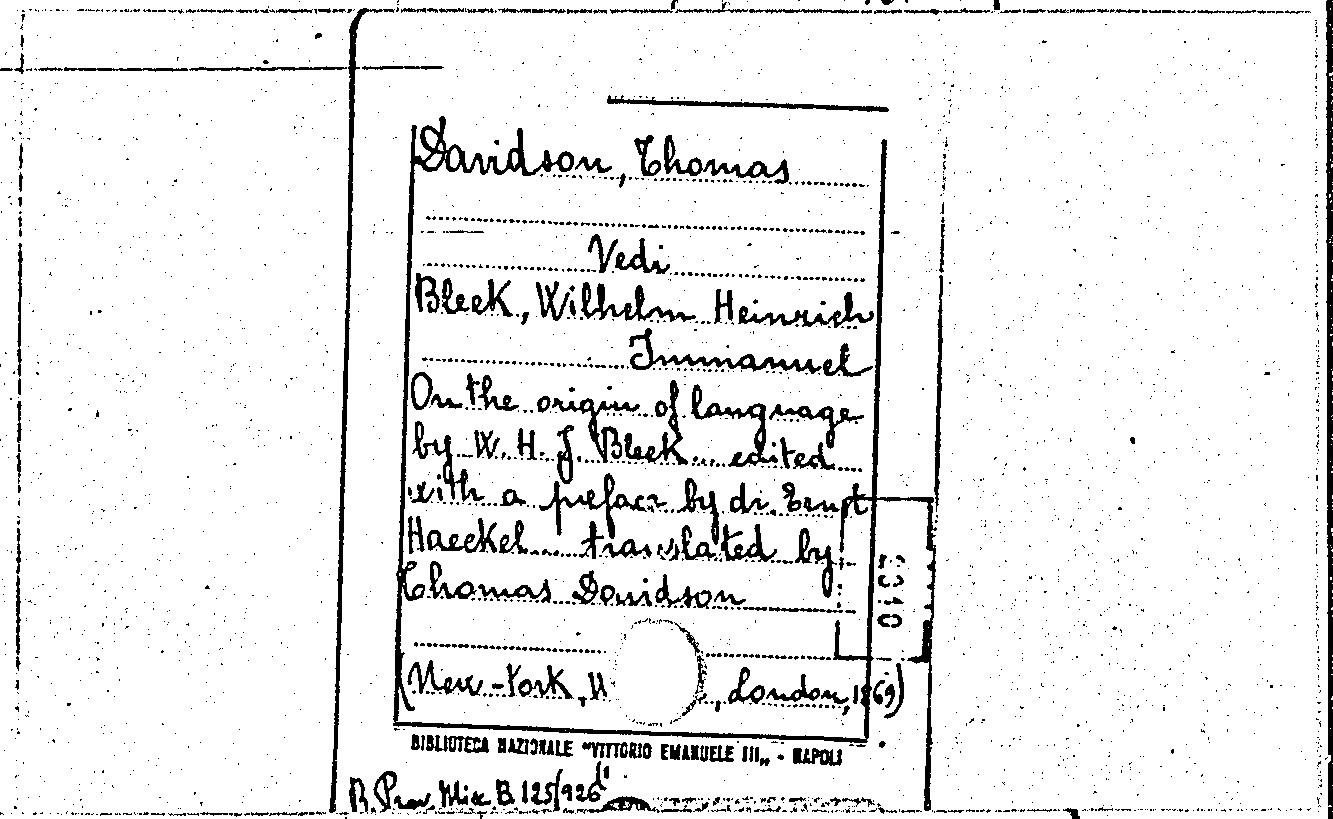 Davidson, Thomas
Vedi
Bleek, Wilhelm Heinrich
Immanuel
On the origin of language
by W. H. J. Bleek... edited
with a preface by dr. Ernst
Haeckel... translated by
Thomas Davidson
(New-York, , London, 1869)
2310
BIBLIOTECA NAZIONALE "VITTORIO EMANUELE III„ - NAPOLI
B. Prov. Misc B. 125/926